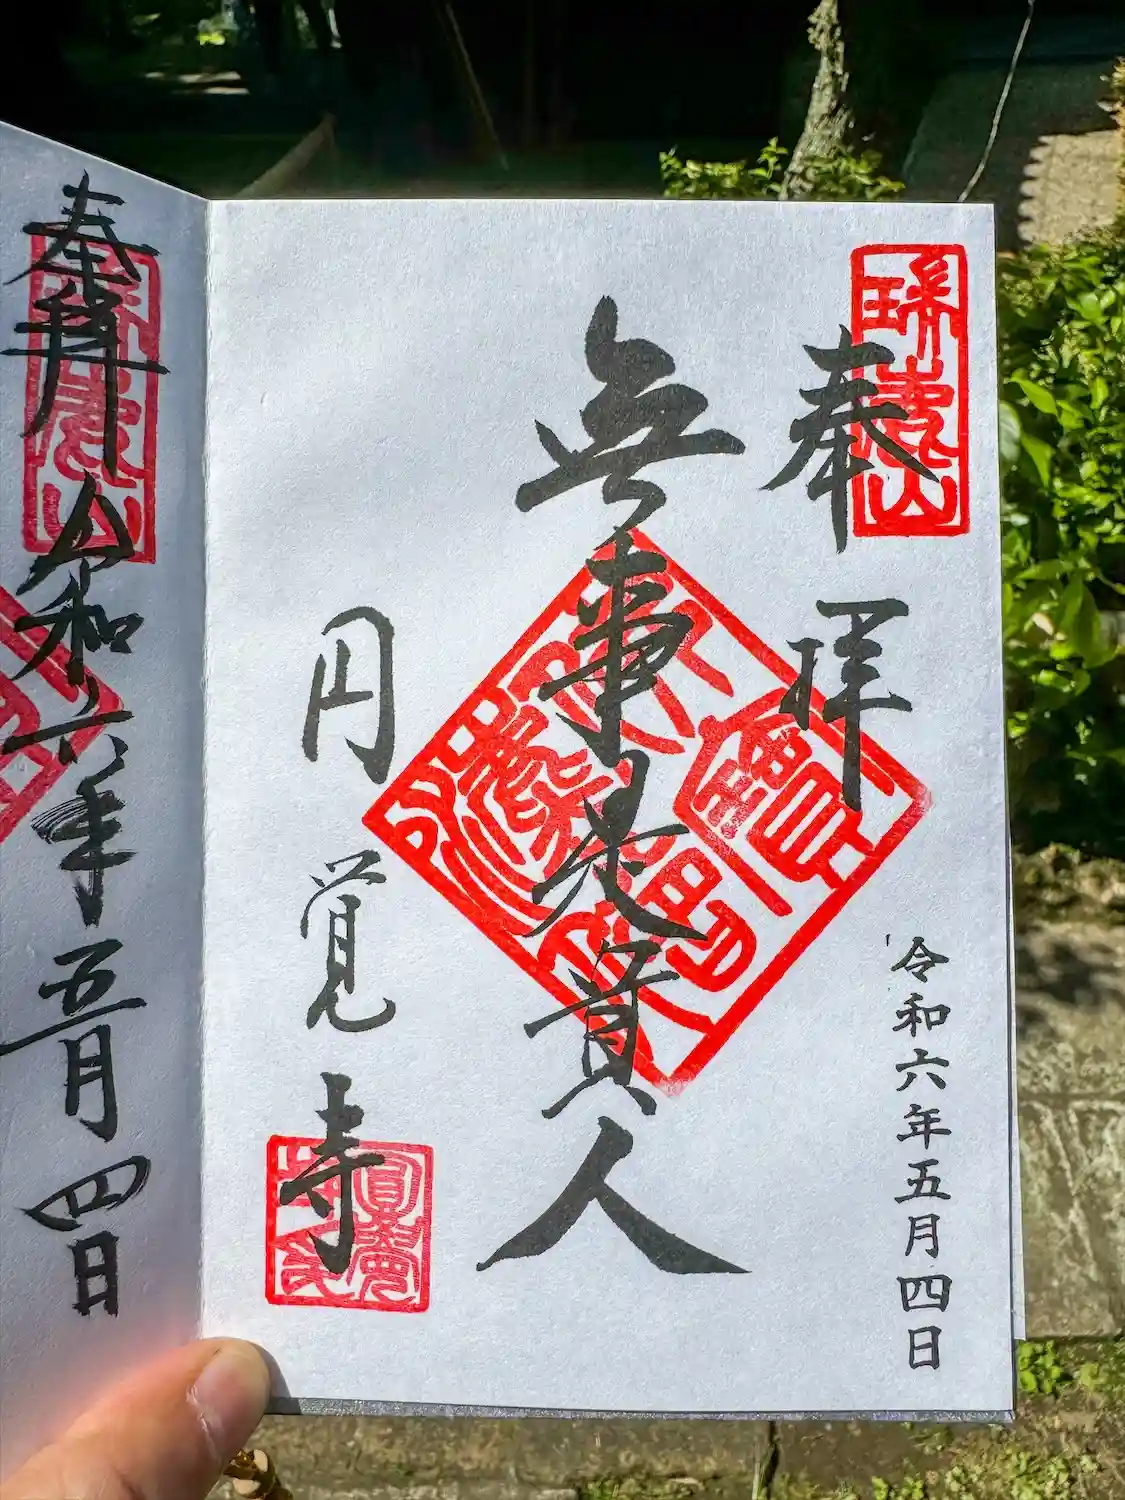 瑞鹿山
奉拝
令和六年五月四日
無事是貴人
円覚寺
奉拝 令和六年五月四日